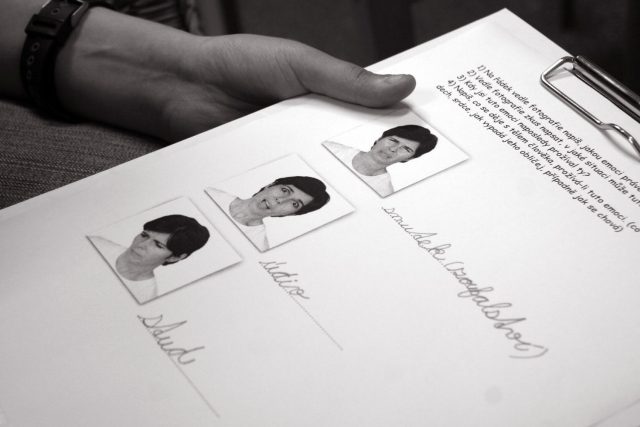 1) Na řádek vedle fotografie napiš, jakou emoci
2) Vedle fotografie zkus napsat, v jaké situaci může
3) Kdy jsi tuto emoci naposledy prožíval ty?
4) Napiš, co se děje s tělem člověka, prožívá-li tuto emoci. (co
dech, srdce, jak vypadá jeho obličej, případně jak se chová)
smutek (zoufalství)
údiv
stud